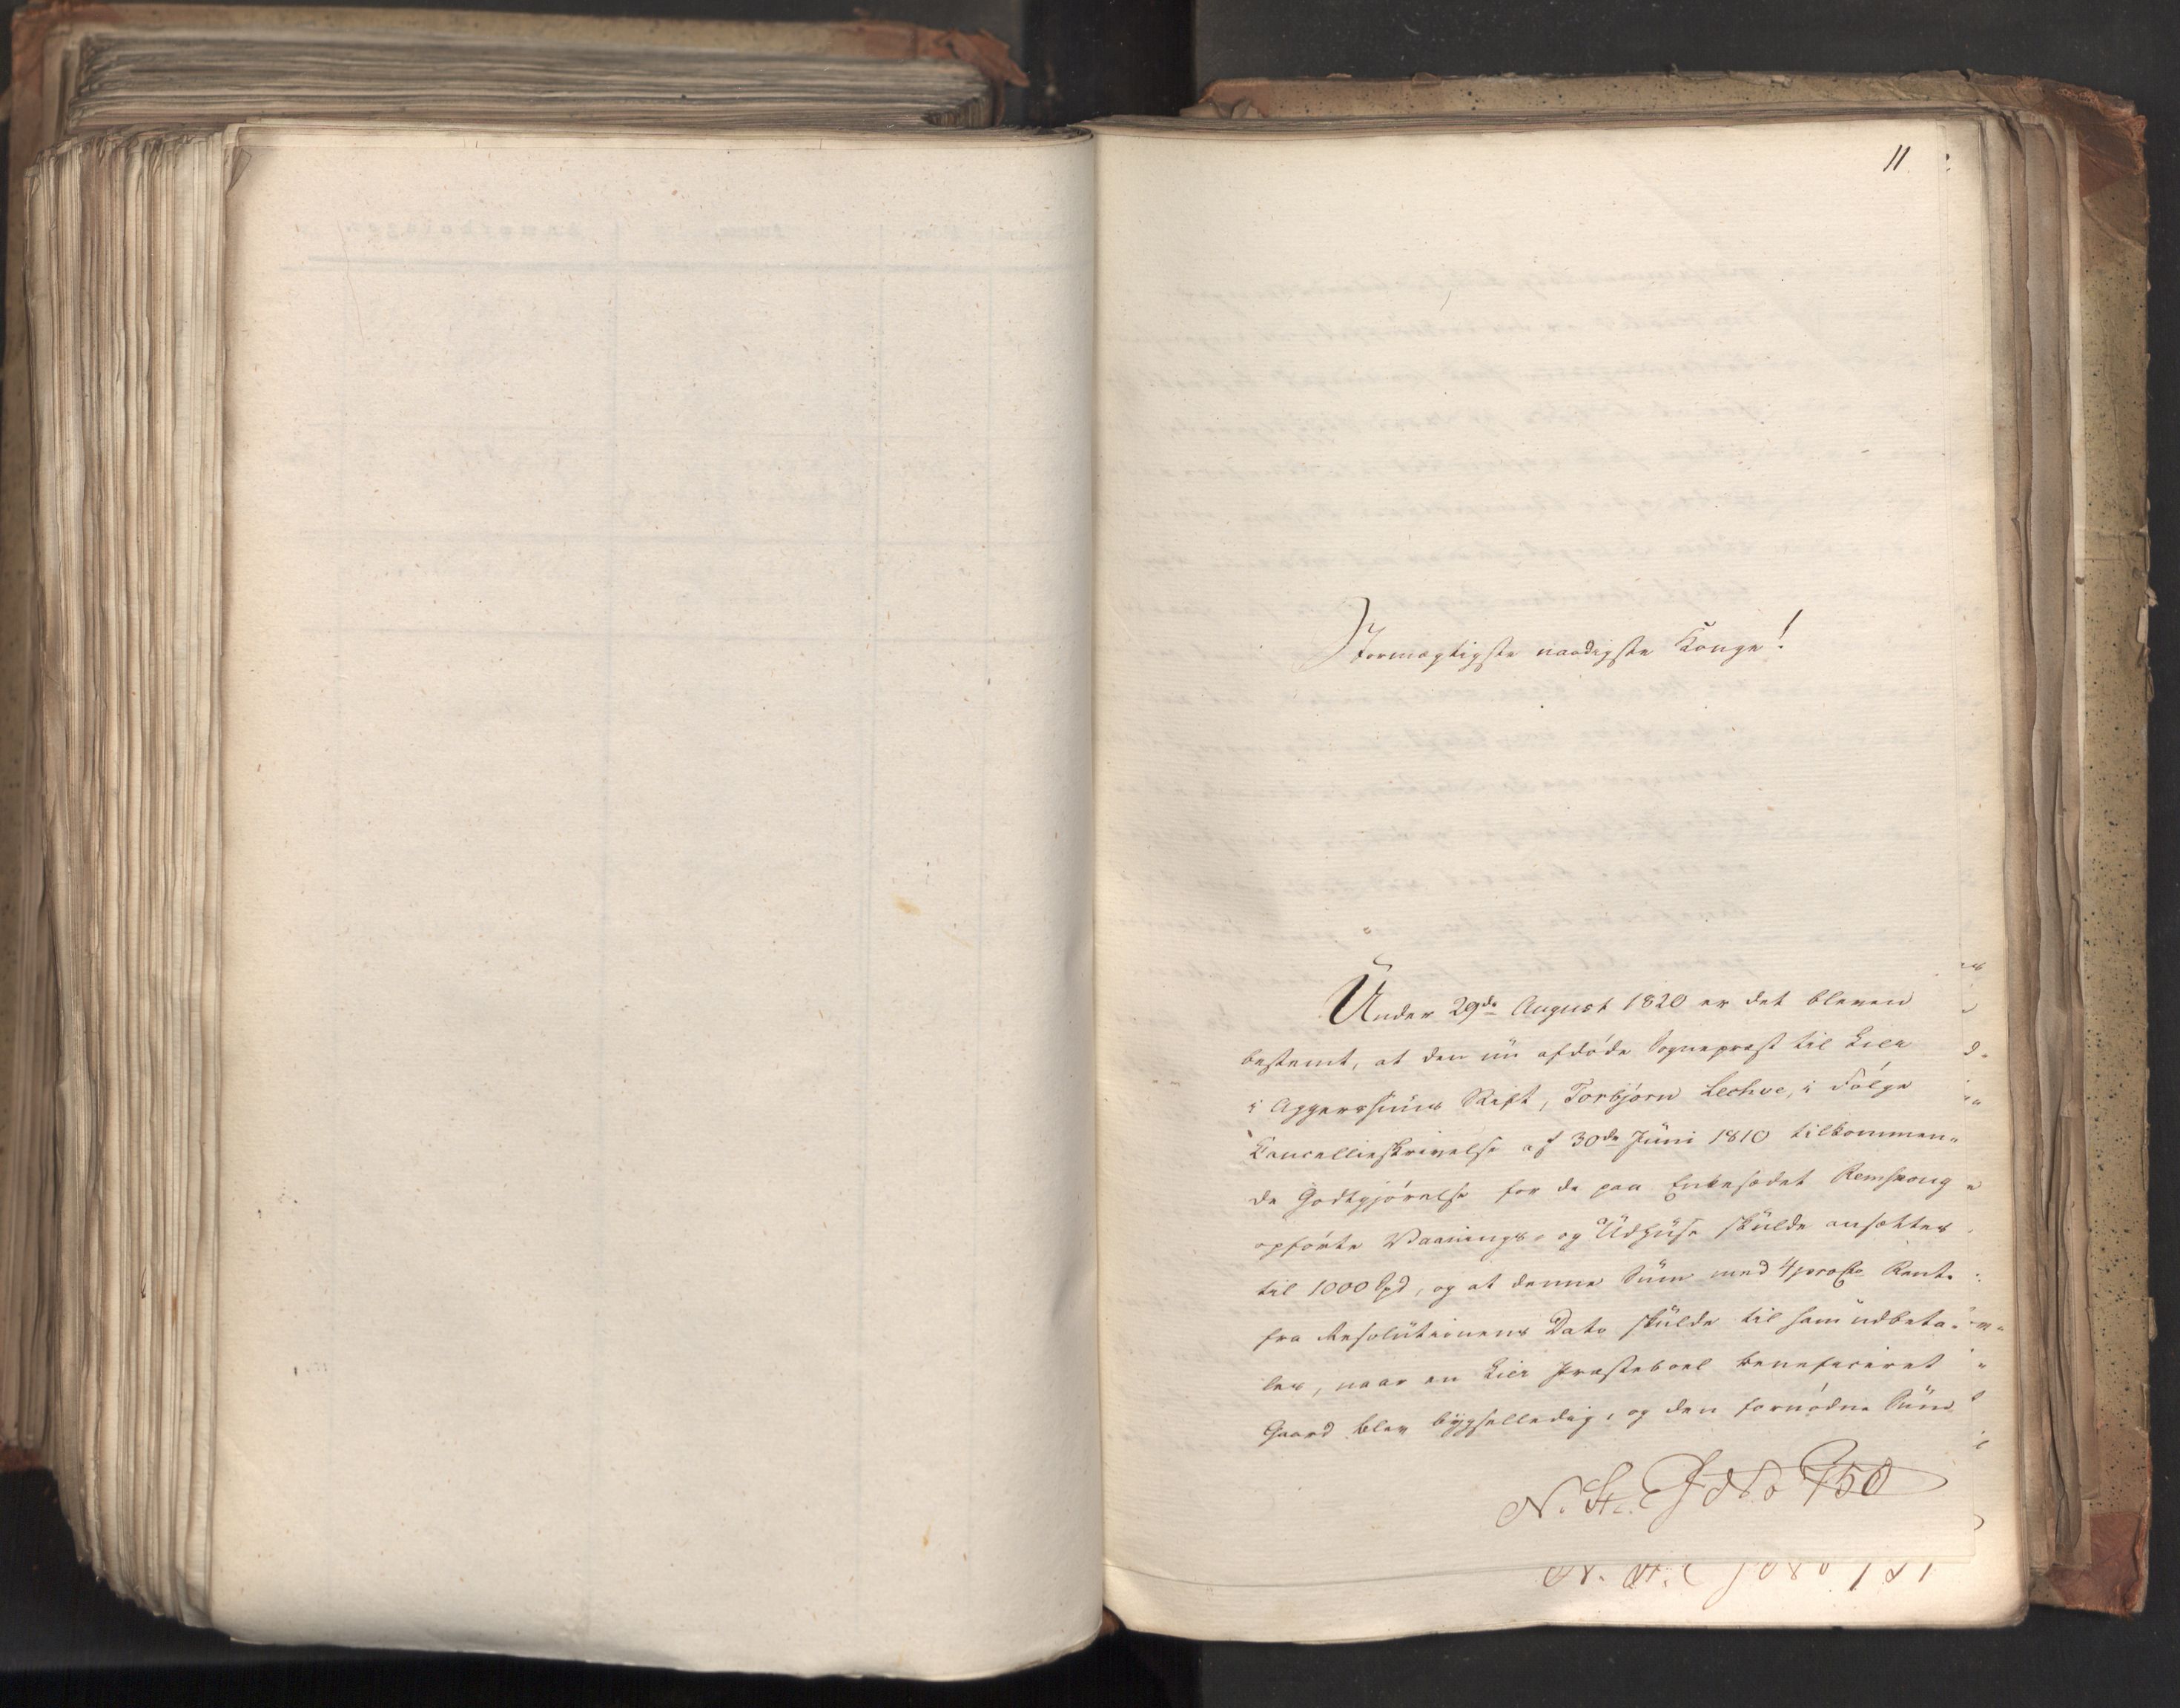 11.
Stormægtigste naadigste Konge!
Under 29de August 1820 er det bleven
bestemt, at den nu afdøde Sognepræst til Lier
i Aggershuus Stift, Torbjørn Lechve, i Følge
Cancellieskrivelse af 30de Juni 1810 tilkommen-
de Godtgjørelse for de paa Enkesædet
opførte Vaanings- og Udhuse skulde ansættes
til 1000 Spd, og at denne Sum med 4 proCto Rente
fra Resolutionens Dato skulde til ham udbeta-
les, naar en Lier Præsteboel beneficeret
Gaard blev bygselledig, og den fornødne Sum
N. St. 750